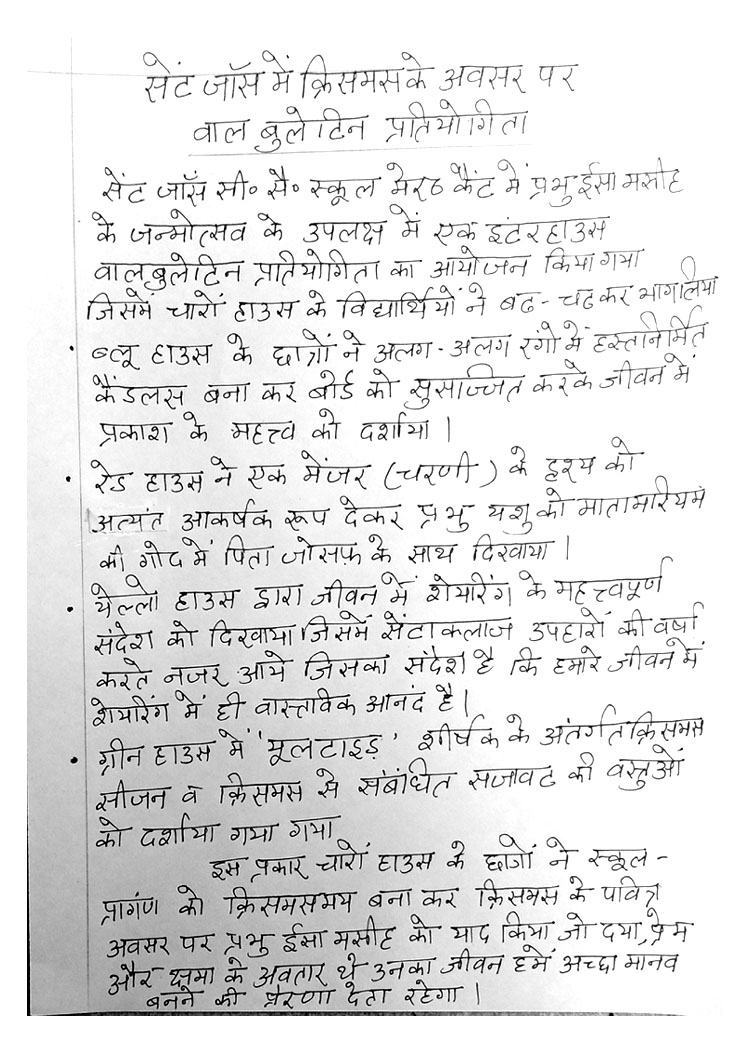 सेंट जॉस में क्रिसमस के अवसर पर
वाल बुलेटिन प्रतियोगिता
सेंट जॉस सी॰ सै॰ स्कूल मेरठ कैंट में प्रभु ईसा मसीह
के जन्मोत्सव के उपलक्ष में एक इंटर हाउस
वाल बुलेटिन प्रतियोगिता का आयोजन किया गया
जिसमें चारों हाउस के विद्यार्थियों ने बढ-चढ कर भाग लिया
• ब्लू हाउस के छात्रों ने अलग-अलग रंगो में हस्तनिर्मित
कैंडलस बना कर बोर्ड को सुसज्जित करके जीवन में
प्रकाश के महत्त्व को दर्शाया।
• रेड हाउस ने एक मेंजर (चरणी) के दृश्य को
अत्यंत आकर्षक रूप देकर प्रभु यशु को माता मारियम
की गोद में पिता जोसफ़ के साथ दिखाया।
• येल्लो हाउस द्वारा जीवन में शेयरिंग के महत्त्वपूर्ण
संदेश को दिखाया जिसमें सेंटाक्लाज उपहारों की वर्षा
करते नजर आये जिसका संदेश है कि हमारे जीवन में
शेयरिंग में ही वास्तविक आनंद है।
• ग्रीन हाउस में 'मूलटाइड़' शीर्षक के अंतर्गत क्रिसमस
सीजन व क्रिसमस से संबंधित सजावट की वस्तुओं
को दर्शाया गया गया
इस प्रकार चारों हाउस के छात्रों ने स्कूल-
प्रागंण को क्रिसमसमय बना कर क्रिसमस के पवित्र
अवसर पर प्रभु ईसा मसीह को याद किया जो दया, प्रेम
और क्षमा के अवतार थे उनका जीवन हमें अच्छा मानव
बनने की प्रेरणा देता रहेगा।